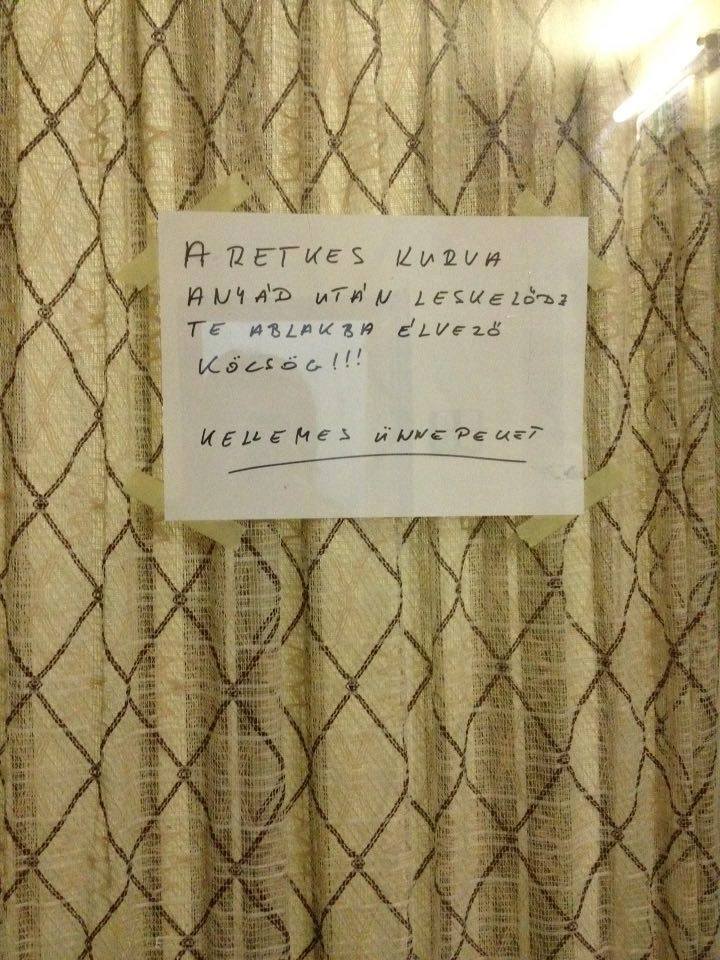 A RETKES KURVA
ANYÁD UTÁN LESKELŐDZ
TE ABLAKBA ÉLVEZŐ
KÖCSÖG!!!
KELLEMES ÜNNEPEKET